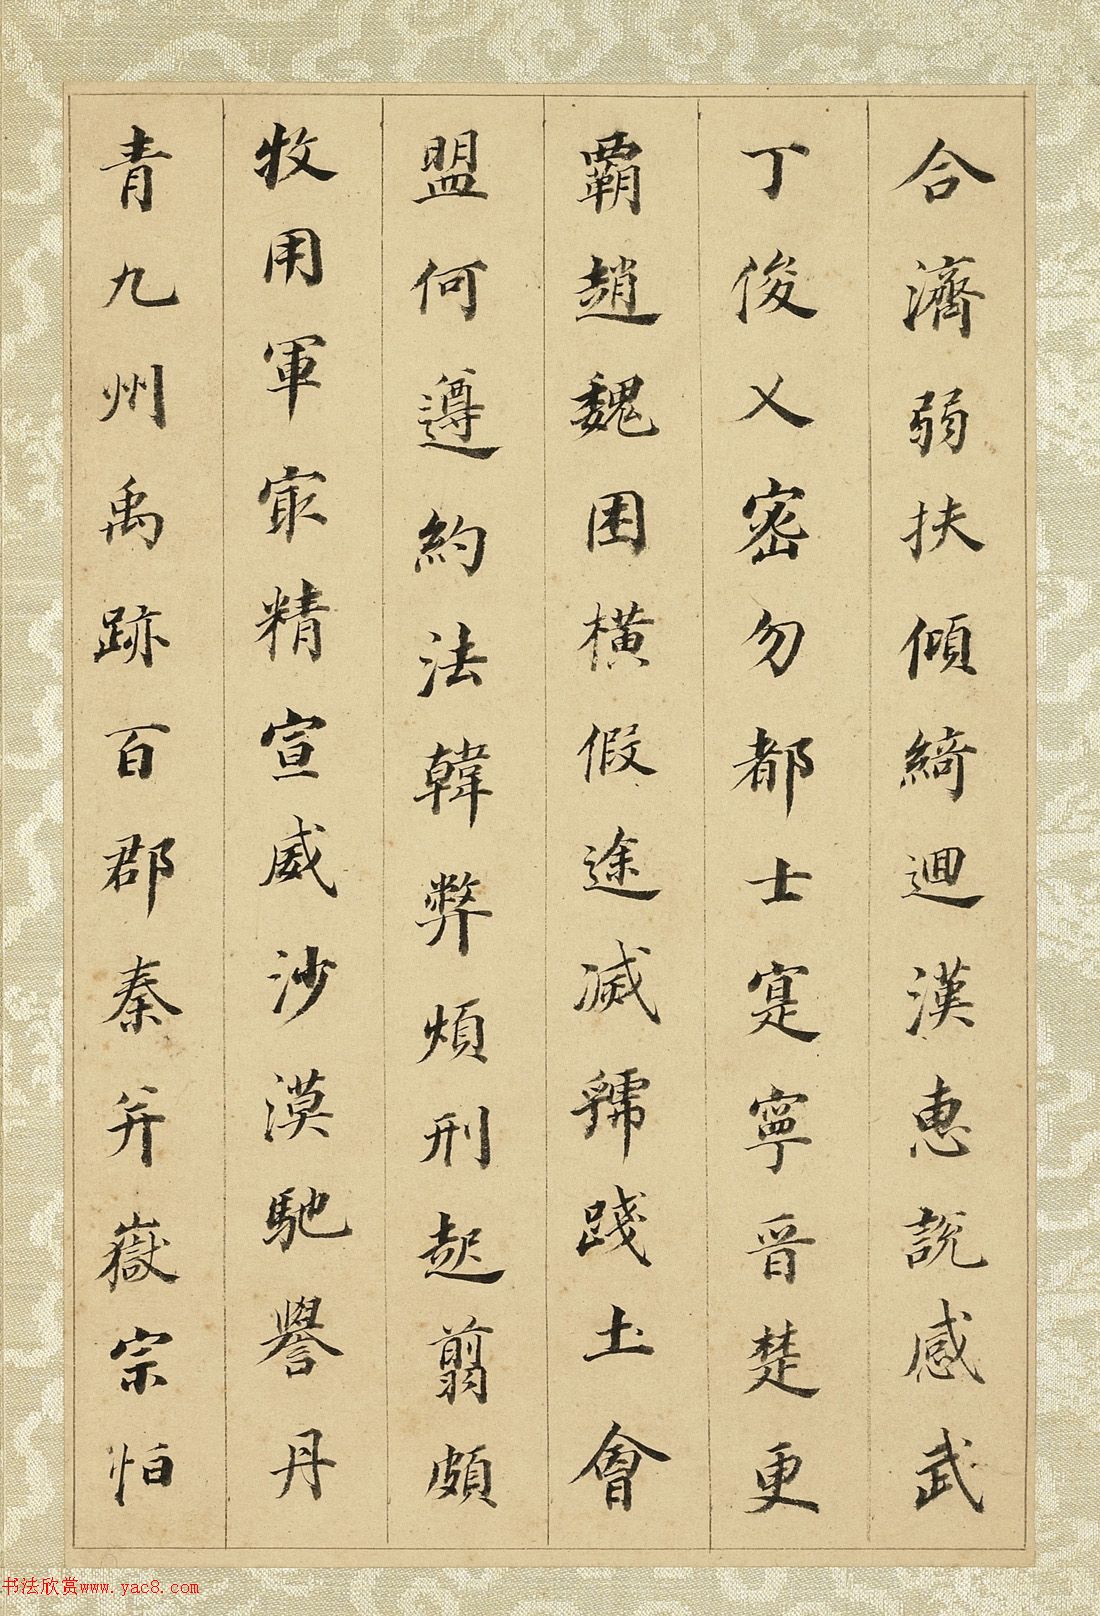 合濟弱扶傾綺迴漢惠説感武
丁俊乂密勿都士寔寧晉楚更
霸趙魏困橫假途滅虢踐土會
盟何遵約法韓弊煩刑起翦頗
牧用軍冣精宣威沙漠馳譽丹
青九州禹跡百郡秦并嶽宗怕
书法欣赏www.yac8.com